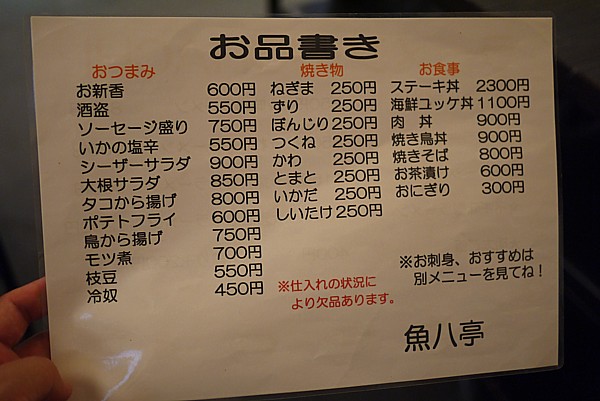 お品書き
おつまみ
お新香 600円
酒盗 550円
ソーセージ盛り 750円
いかの塩辛 550円
シーザーサラダ 900円
大根サラダ 850円
タコから揚げ 800円
ポテトフライ 600円
鳥から揚げ 750円
モツ煮 700円
枝豆 550円
冷奴 450円
焼き物
ねぎま 250円
ずり 250円
ぼんじり 250円
つくね 250円
かわ 250円
とまと 250円
いかだ 250円
しいたけ 250円
お食事
ステーキ丼 2300円
海鮮ユッケ丼 1100円
肉 丼 900円
焼き鳥丼 900円
焼きそば 800円
お茶漬け 600円
おにぎり 300円
※仕入れの状況に
より欠品あります。
※お刺身、おすすめは
別メニューを見てね！
魚八亭